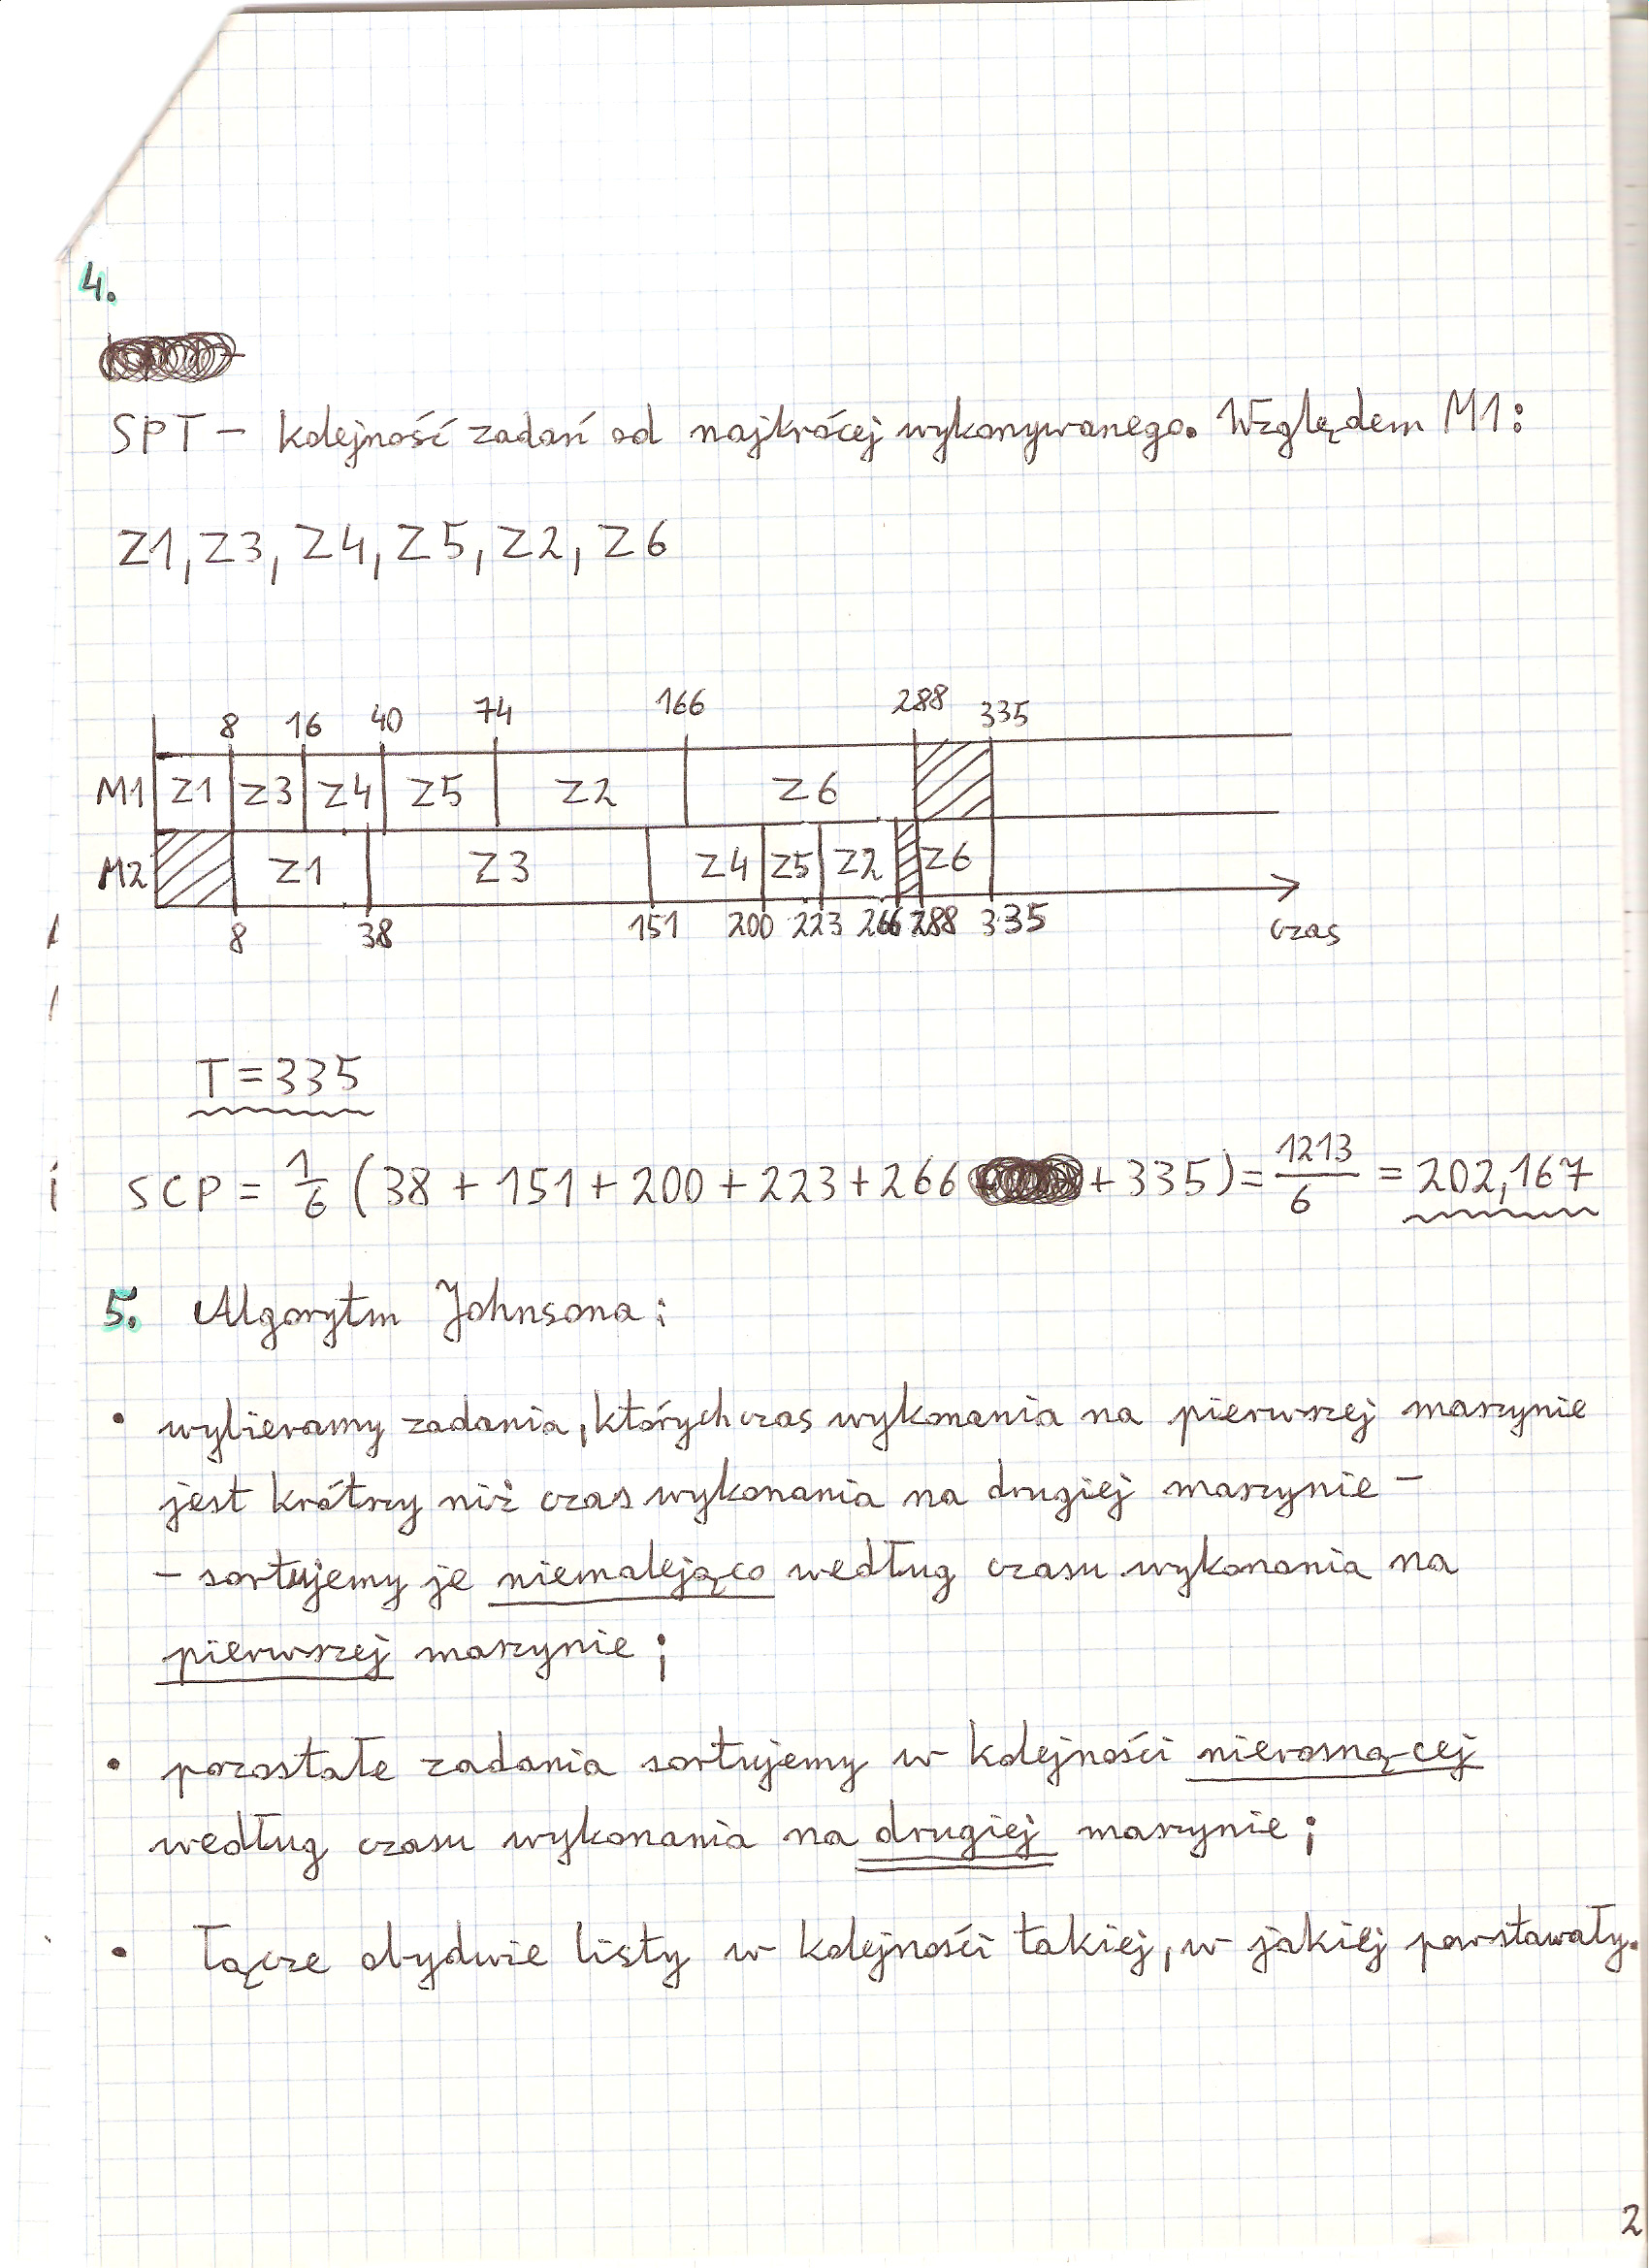 4.
SPT - kolejność zadań od najkrócej wykonywanego. Względem M1:
Z1, Z3, Z4, Z5, Z2, Z6
8 16 40 74 166 288 335
M1 Z1 Z3 Z4 Z5 Z2 Z6
M2 Z1 Z3 Z4 Z5 Z2 Z6
8 38 151 200 223 266 288 335 czas
T = 335
SCP = 1/6 (38 + 151 + 200 + 223 + 266 + 335) = 1213/6 = 202,167
5. Algorytm Johnsona:
• wybieramy zadania, których czas wykonania na pierwszej maszynie
jest krótszy niż czas wykonania na drugiej maszynie -
- sortujemy je niemalejąco według czasu wykonania na
pierwszej maszynie;
• pozostałe zadania sortujemy w kolejności nierosnącej
według czasu wykonania na drugiej maszynie;
• łączę obydwie listy w kolejności takiej, w jakiej powstawały.
2